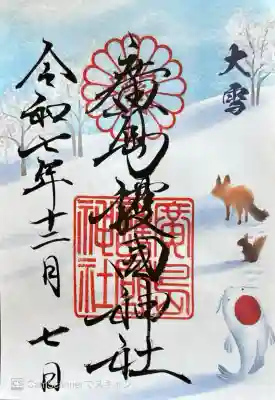 大雪
廣島護國神社
令和七年十二月七日
廣島護國神社
CamScanner でスキャン